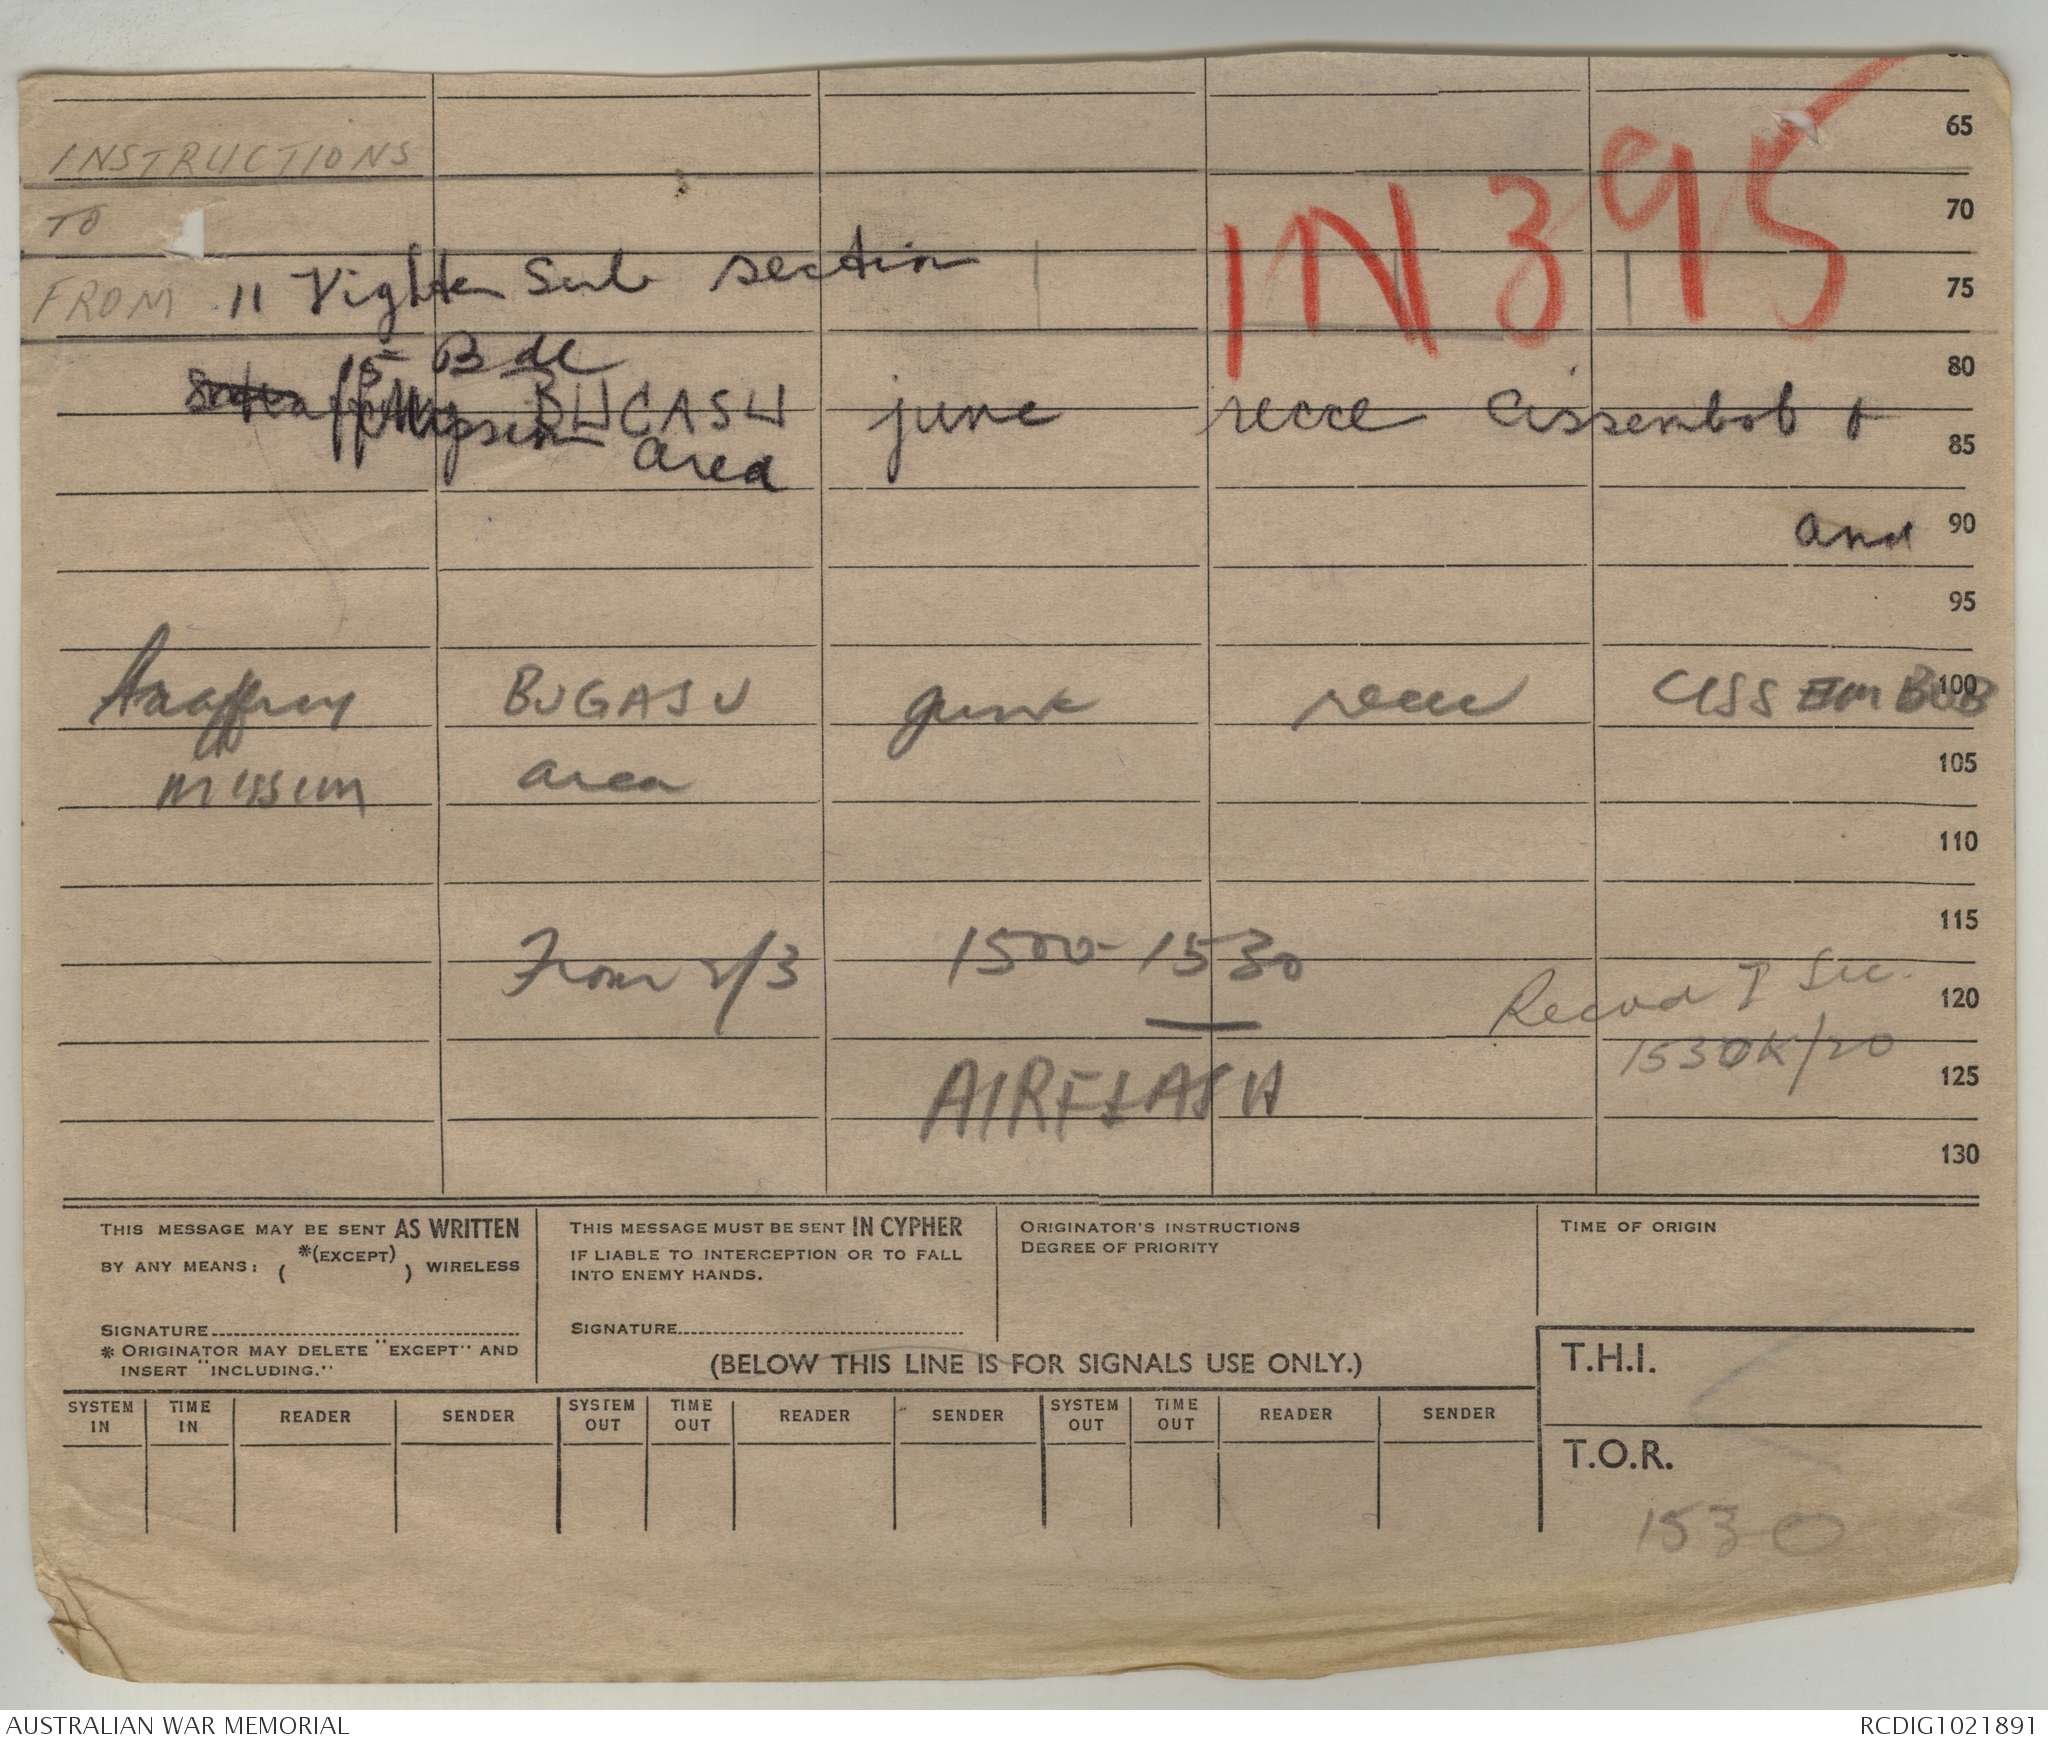 65
INSTRUCTIONS
IN 395
TO
70
FROM 11 Sub section
75
15 Bde
80
BUCASU june recce Cissembob +
area
85
and 90
95
BUGASU june recce CISSEMBOB
100
missim area
105
110
115
From 2/3 1500 - 1530
Recvd I Sec.
120
1530K/20
AIRFLASH
125
130
THIS MESSAGE MAY BE SENT AS WRITTEN
BY ANY MEANS: ( *(EXCEPT) ) WIRELESS
SIGNATURE
* ORIGINATOR MAY DELETE "EXCEPT" AND
INSERT "INCLUDING."
THIS MESSAGE MUST BE SENT IN CYPHER
IF LIABLE TO INTERCEPTION OR TO FALL
INTO ENEMY HANDS.
SIGNATURE
ORIGINATOR'S INSTRUCTIONS
DEGREE OF PRIORITY
TIME OF ORIGIN
(BELOW THIS LINE IS FOR SIGNALS USE ONLY.)
T.H.I.
SYSTEM IN TIME IN READER SENDER SYSTEM OUT TIME OUT READER SENDER SYSTEM OUT TIME OUT READER SENDER
T.O.R.
1530
AUSTRALIAN WAR MEMORIAL
RCDIG1021891